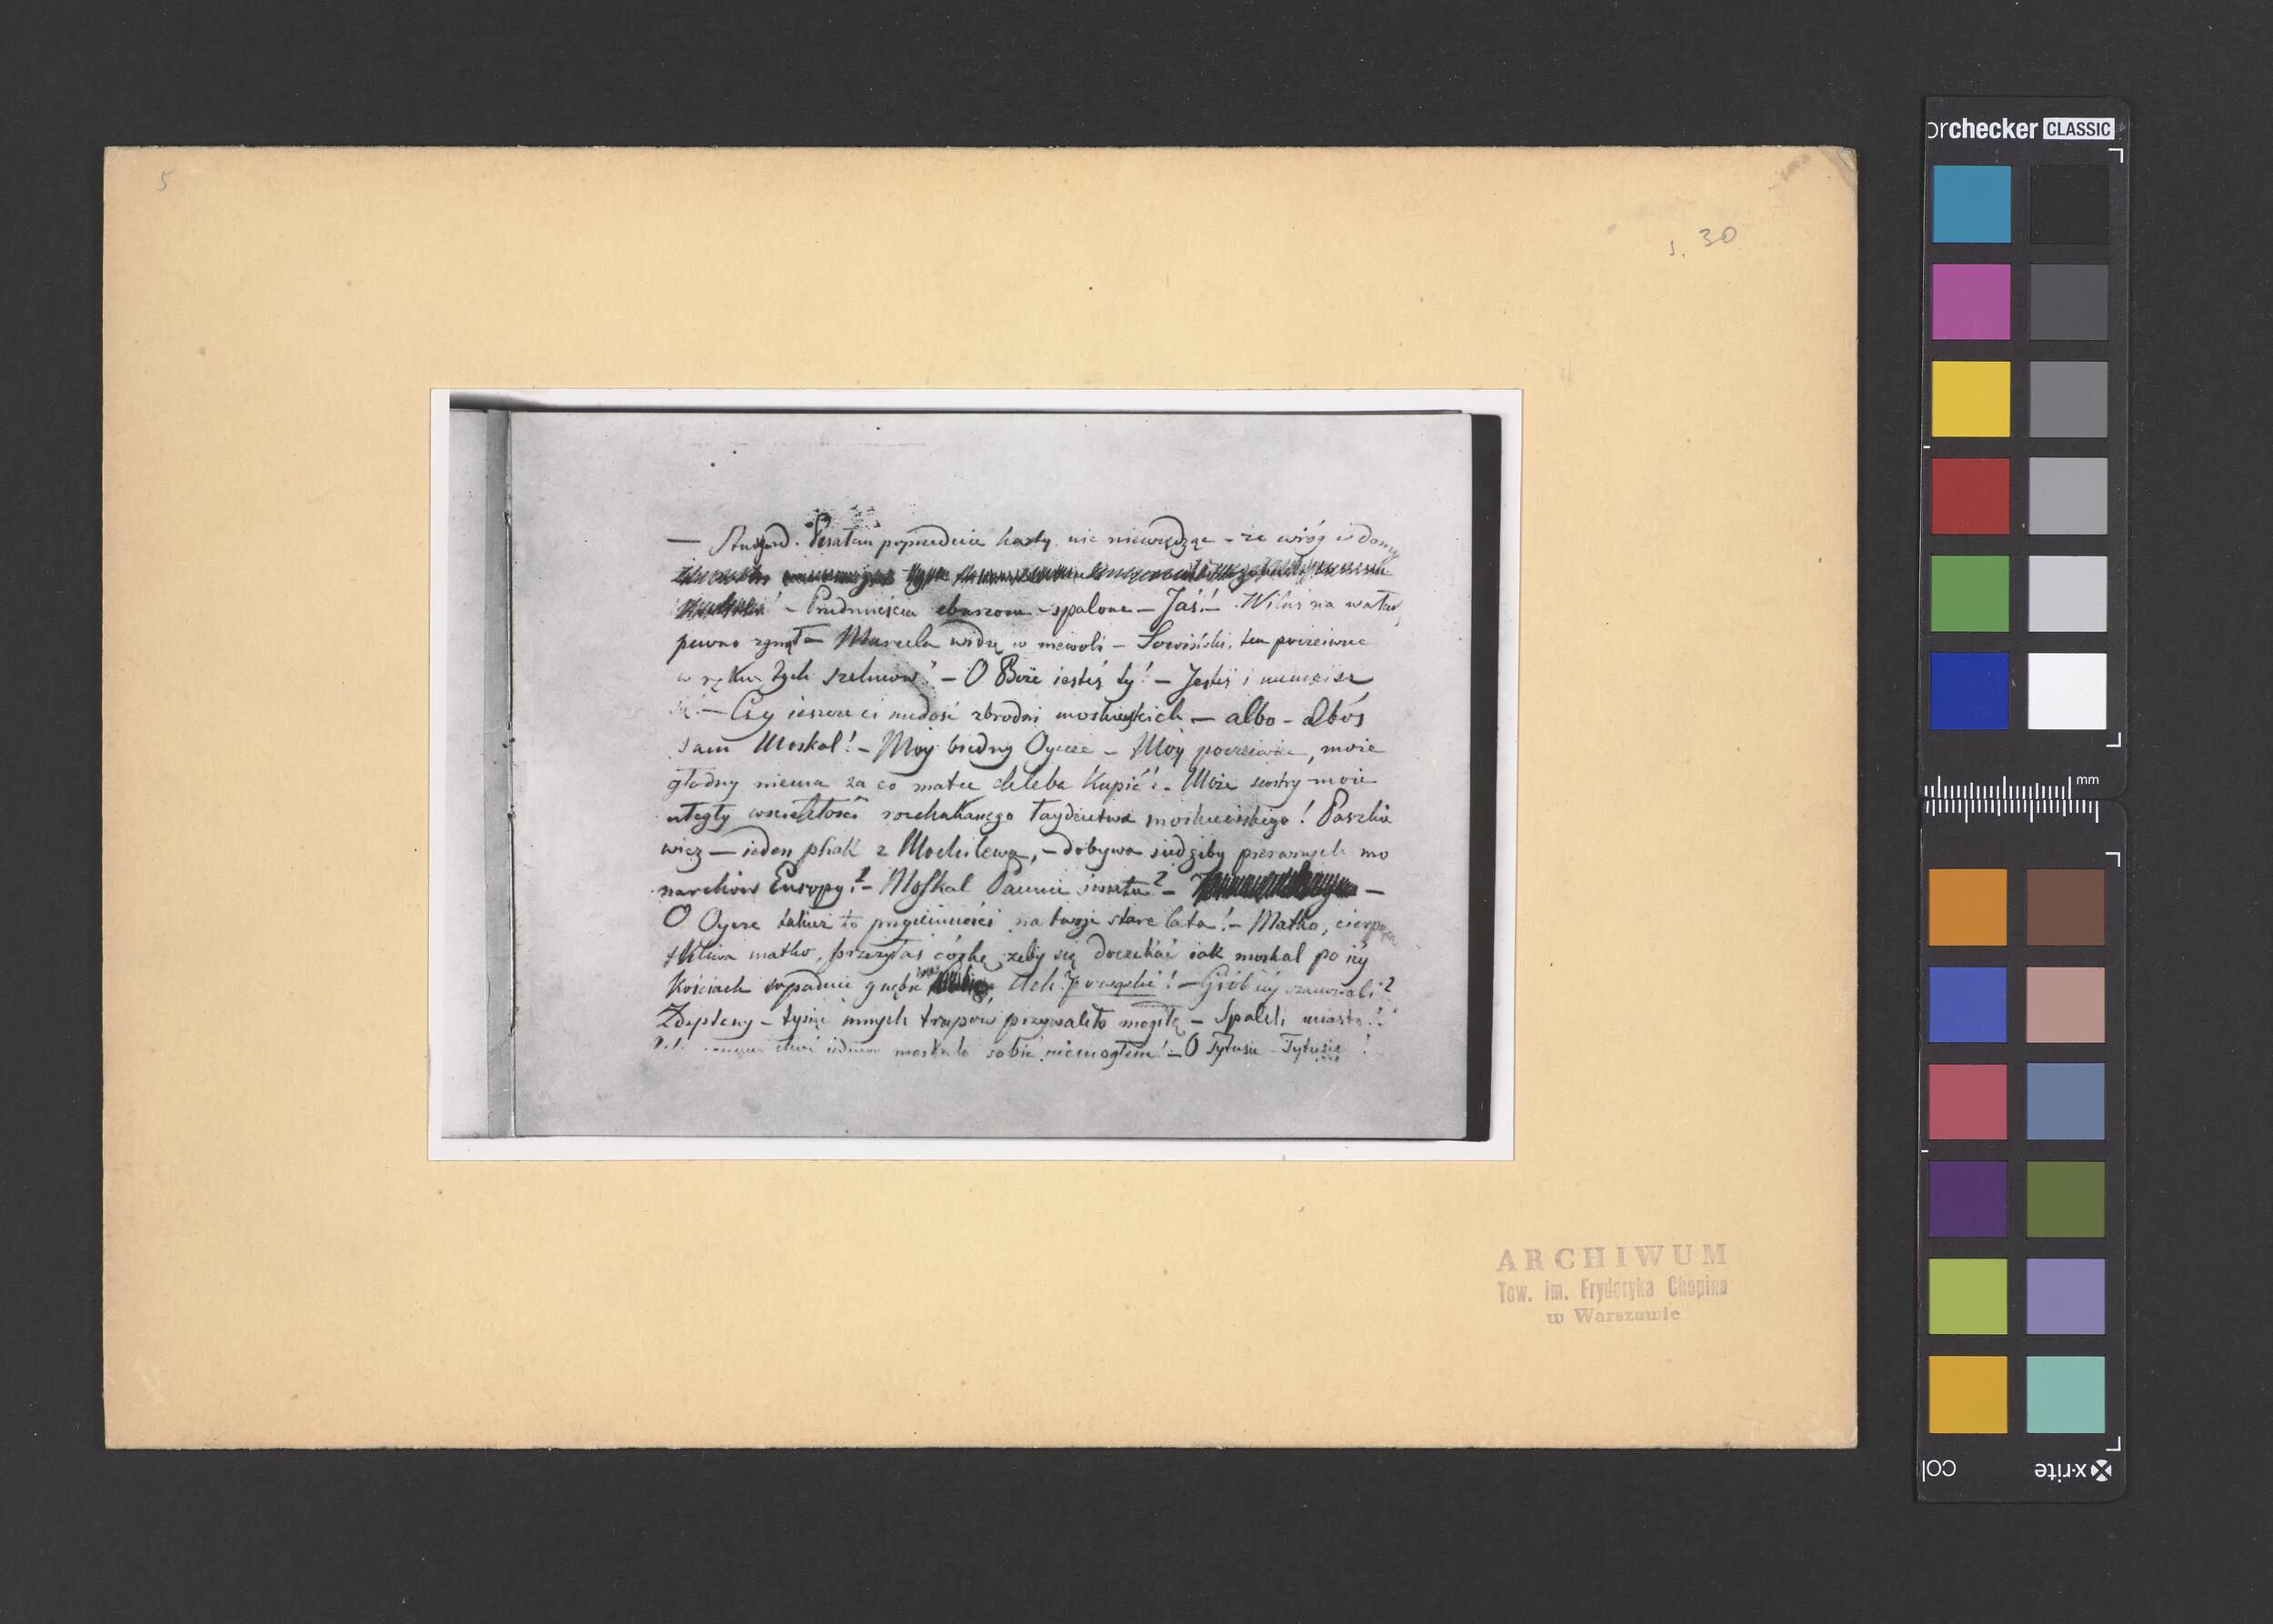 5
s. 30
— Stuttgard. Pisałem poprzednie karty nic niewiedząc – że wróg w domu
– Przedmieścia zburzone – spalone – Jaś! – Wiluś na wałach
pewno zginął – Marcela widzę w niewoli – Sowiński, ten poczciwiec
w ręku tych szelmów! – O Boże iesteś ty! – Jesteś i niemścisz
się! – Czy ieszcze ci niedość zbrodni moskiewskich – albo – alboś
sam Moskal! – Mój biedny Oyciec – Mój poczciwiec, może
głodny niema za co matce chleba kupić! – Może siostry moie
uległy wściekłości rozhukanego łaydactwa moskiewskiego! Paszkie
wicz — ieden psiak z Mochilewa, – dobywa siedziby pierwszych mo
narchów Europy?! – Moskal Panem świata? – –
O Oycze takież to przyiemności na twoje stare lata! – Matko, cierpiąca
tkliwa matko, przeżyłaś córkę, żeby się doczekać iak moskal po iéy
kościach wpadnie gnębić was, Ach Powązki! – Grób iéy szanowali?
Zdeptany – tysiąc innych trupów przywaliło mogiłę – Spalili miasto!!
choć iednego moskala zabić niemogłem! – O Tytusie – Tytusie!
ARCHIWUM
Tow. im. Fryderyka Chopina
w Warszawie
orchecker CLASSIC
mm
x-rite
col